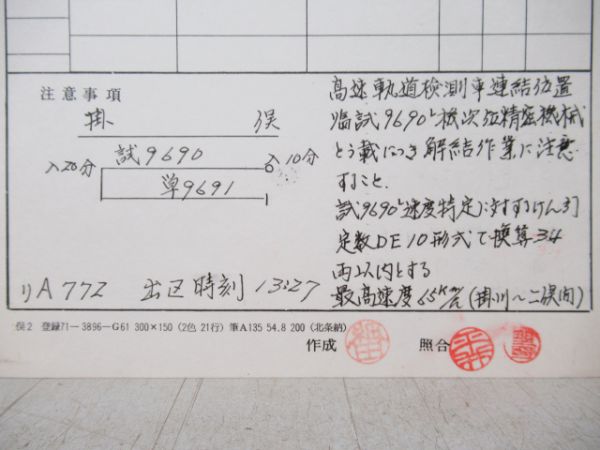 注意事項
掛 俣
試9690
入20分 入10分
単9691
りA772 出区時刻 13:27
高速軌道検測車連結位置
臨試9690ﾚ機次位精密機械
とう載につき解結作業に注意
すること.
試9690ﾚ速度特定に対するけん引
定数DE10形式で換算34
両以内とする
最高速度65km/h(掛川〜二俣間)
俣2 登録71-3896-G61 300×150 (2色 21行) 筆A135 54.8 200 (北条納)
作成 照合